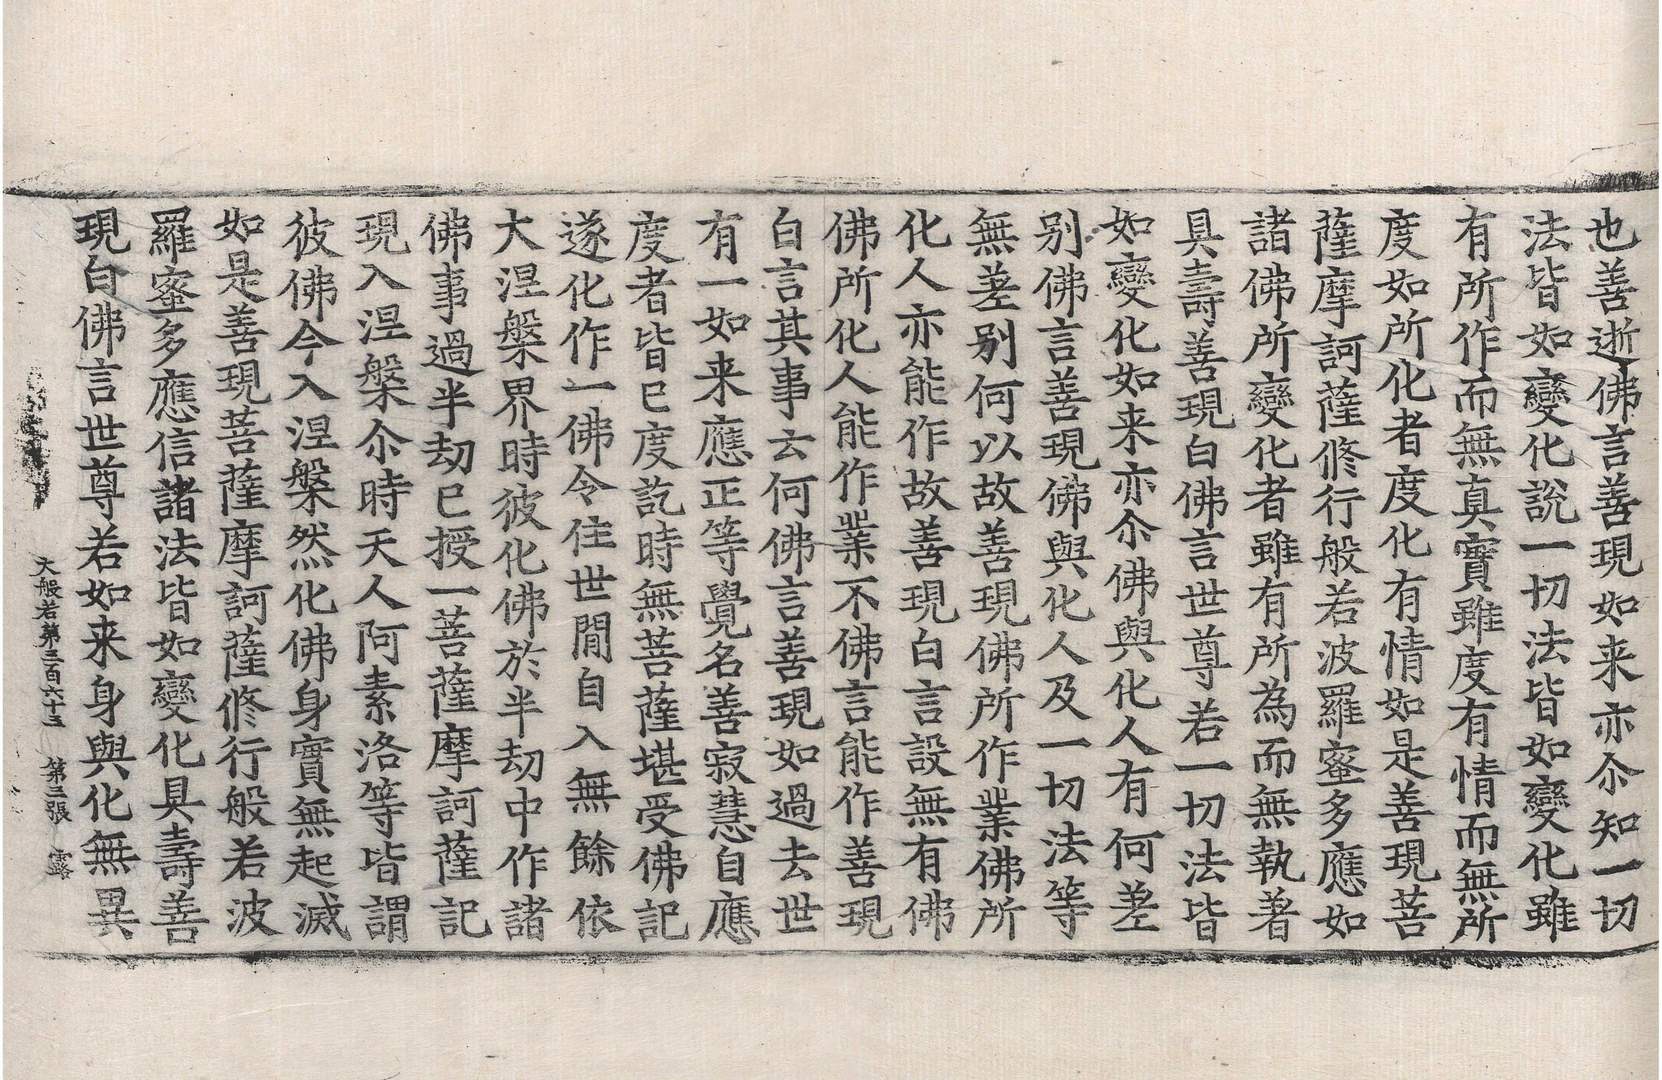 也善逝佛言善現如来亦尒知一切
法皆如變化說一切法皆如變化雖
有所作而無真實雖度有情而無所
度如所化者度化有情如是善現菩
薩摩訶薩修行般若波羅蜜多應如
諸佛所變化者雖有所為而無執著
具壽善現白佛言世尊若一切法皆
如變化如来亦尒佛與化人有何差
别佛言善現佛與化人及一切法等
無差别何以故善現佛所作業佛所
化人亦能作故善現白言設無有佛
佛所化人能作業不佛言能作善現
白言其事云何佛言善現如過去世
有一如来應正等覺名善寂慧自應
度者皆已度訖時無菩薩堪受佛記
遂化作一佛令住世間自入無餘依
大涅槃界時彼化佛於半劫中作諸
佛事過半劫已授一菩薩摩訶薩記
現入涅槃尒時天人阿素洛等皆謂
彼佛今入涅槃然化佛身實無起滅
如是善現菩薩摩訶薩修行般若波
羅蜜多應信諸法皆如變化具壽善
現白佛言世尊若如来身與化無異
大般若第三百六十三 第三張 露